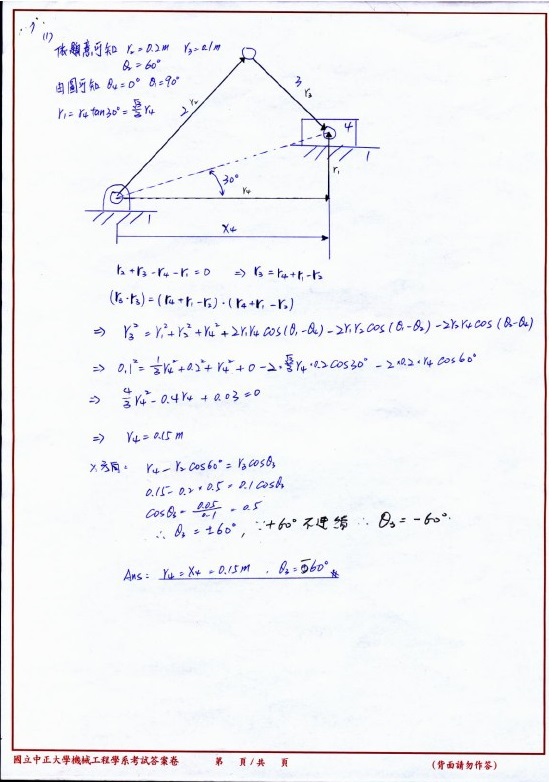 (1)
依題意可知 r₂=0.2m r₃=0.1m
θ₂=60°
由圖可知 θ₄=0° θ₁=90°
r₁=r₄tan30°=√3/3 r₄
2
r₂
3
r₃
4
1
30°
r₄
r₁
1
X₄
r₂+r₃-r₄-r₁=0 ⇒ r₃=r₄+r₁-r₂
(r₃·r₃)=(r₄+r₁-r₂)·(r₄+r₁-r₂)
⇒ r₃²=r₁²+r₂²+r₄²+2r₁r₄cos(θ₁-θ₄)-2r₁r₂cos(θ₁-θ₂)-2r₂r₄cos(θ₂-θ₄)
⇒ 0.1²=1/3r₄²+0.2²+r₄²+0-2·√3/3r₄·0.2cos30°-2·0.2·r₄cos60°
⇒ 4/3r₄²-0.4r₄+0.03=0
⇒ r₄=0.15m
X方向: r₄-r₂cos60°=r₃cosθ₃
0.15-0.2×0.5=0.1cosθ₃
cosθ₃=0.05/0.1=0.5
∴ θ₃=±60°, ∵+60°不連續 ∴ θ₃=-60°.
Ans: r₄=X₄=0.15m , θ₃=-60°
國立中正大學機械工程學系考試答案卷 第 頁/共 頁 (背面請勿作答)